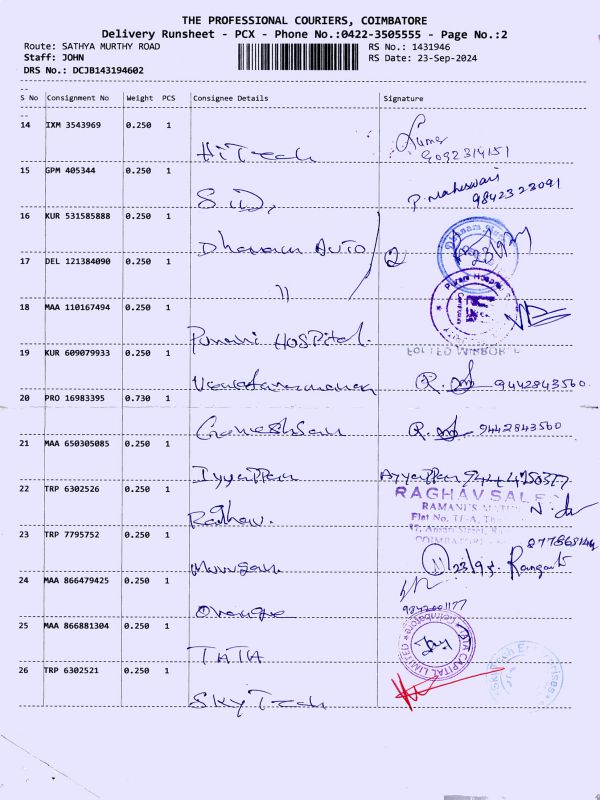 THE PROFESSIONAL COURIERS, COIMBATORE
Delivery Runsheet - PCX - Phone No.:0422-3505555 - Page No.:2
Route: SATHYA MURTHY ROAD RS No.: 1431946
Staff: JOHN RS Date: 23-Sep-2024
DRS No.: DCJB143194602
S No Consignment No Weight PCS Consignee Details Signature
14 IXM 3543969 0.250 1
HiTech Kumar
9092314151
15 GPM 405344 0.250 1
S.U.D, P. Maheswari
9842322091
16 KUR 531585888 0.250 1
Dhanam AUTO 2
17 DEL 121384090 0.250 1
"
18 MAA 110167494 0.250 1
Purani Hospital.
19 KUR 609079933 0.250 1
Venkataramanan R. 9442843560.
20 PRO 16983395 0.730 1
Ganeshsan R. 9442843560
21 MAA 650305085 0.250 1
Iyyappan Ayyappan
22 TRP 6302526 0.250 1
RAGHAV SALES
RAMANI'S
Flat No.
Raghav.
COIMBATORE
23 TRP 7795752 0.250 1
Murugan 23/9
24 MAA 866479425 0.250 1
Orange 9842001177
25 MAA 866881304 0.250 1
TATA
CAPITAL LIMITED
Coimbatore
26 TRP 6302521 0.250 1
Sky Tech